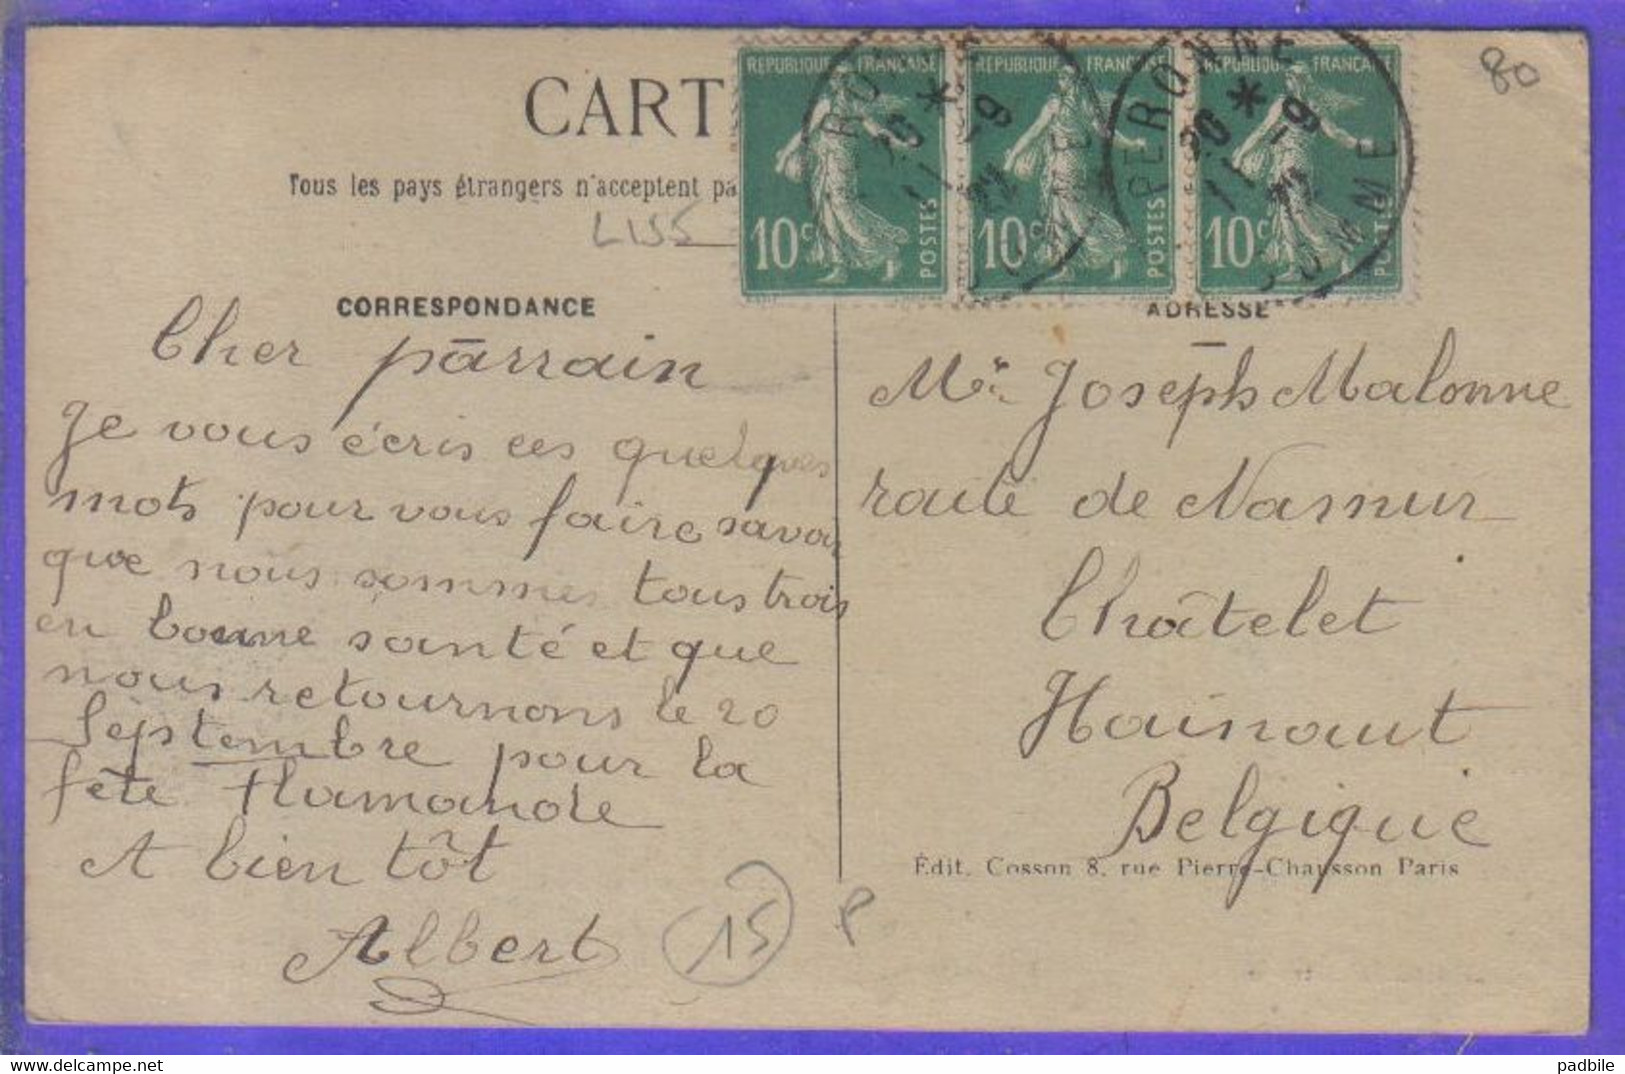 CART
Tous les pays étrangers n'acceptent pa
LISS
80
REPUBLIQUE FRANÇAISE
10c POSTES
REPUBLIQUE FRANÇAISE
10c POSTES
REPUBLIQUE FRANÇAISE
10c POSTES
PERONNE
20 *
11 -9
22
SOMME
CORRESPONDANCE
Cher parrain
Je vous écris ces quelques
mots pour vous faire savoir
que nous sommes tous trois
en bonne santé et que
nous retournons le 20
Septembre pour la
fête flamande
A bien tôt
Albert
15
ADRESSE
Mr. Joseph Malonne
route de Namur
Châtelet
Hainaut
Belgique
Édit. Cosson 8, rue Pierre-Chausson Paris
padbile